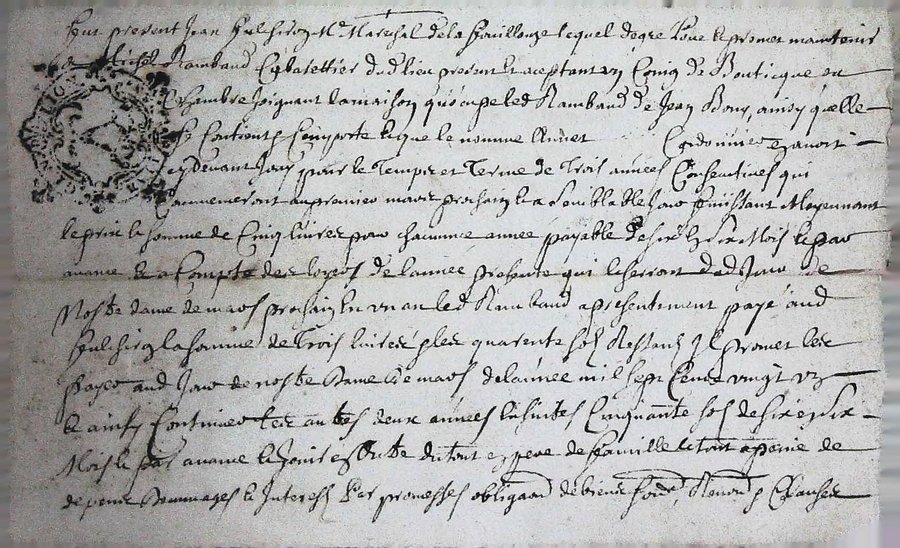 fut present Jean fulchiron Me Mareschal de la fouillouze lequel de gre loue et promet maintenir
a Michel Rambaud Cabarettier dud lieu present et aceptant un Coing de Boutique ou
Chambre joignant la maison qu'ocupe led Rambaud de Jean Bony, ainsy quelle
se Contient et Comporte et que le nomme Annet en avoit
cy devant Jouy pour le Temps et Terme de Trois années Consecutives qui
Commenceront au premier mars prochain et a semblable Jour finissant Moyennant
le prix et somme de Cinq livres pour chacunne année payable de six en six Mois et par
avance et a Compte des loyers de l'année presente qui escherront dud Jour de
Nostre dame de mars prochain en un an led Rambaud a presentement payé aud
fulchiron la somme de Trois livres et les quarente sols Restants Il promet les
payer aud Jour de nostre dame de mars de l'année mil sept Cents vingt un
et ainsy Continuer les autres deux années suivantes Cinquante sols de six en six
Mois et par avance et Jouira de tout en pere de famille le tout a peine de
depens dommages et Interests Par promesses obligaons de biens Soubms Renons et Clauses